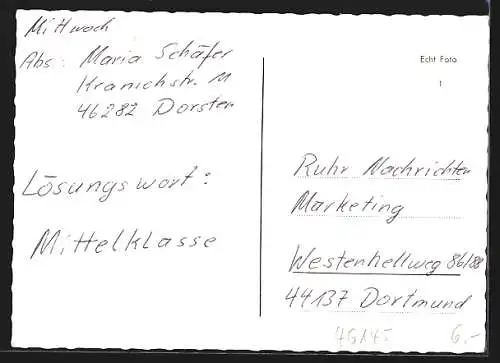 Mittwoch
Abs: Maria Schäfer
Kranichstr. 11
46282 Dorsten
Lösungswort:
Mittelklasse
Echt Foto
1
Ruhr Nachrichten
Marketing
Westenhellweg 86/88
44137 Dortmund
6,-